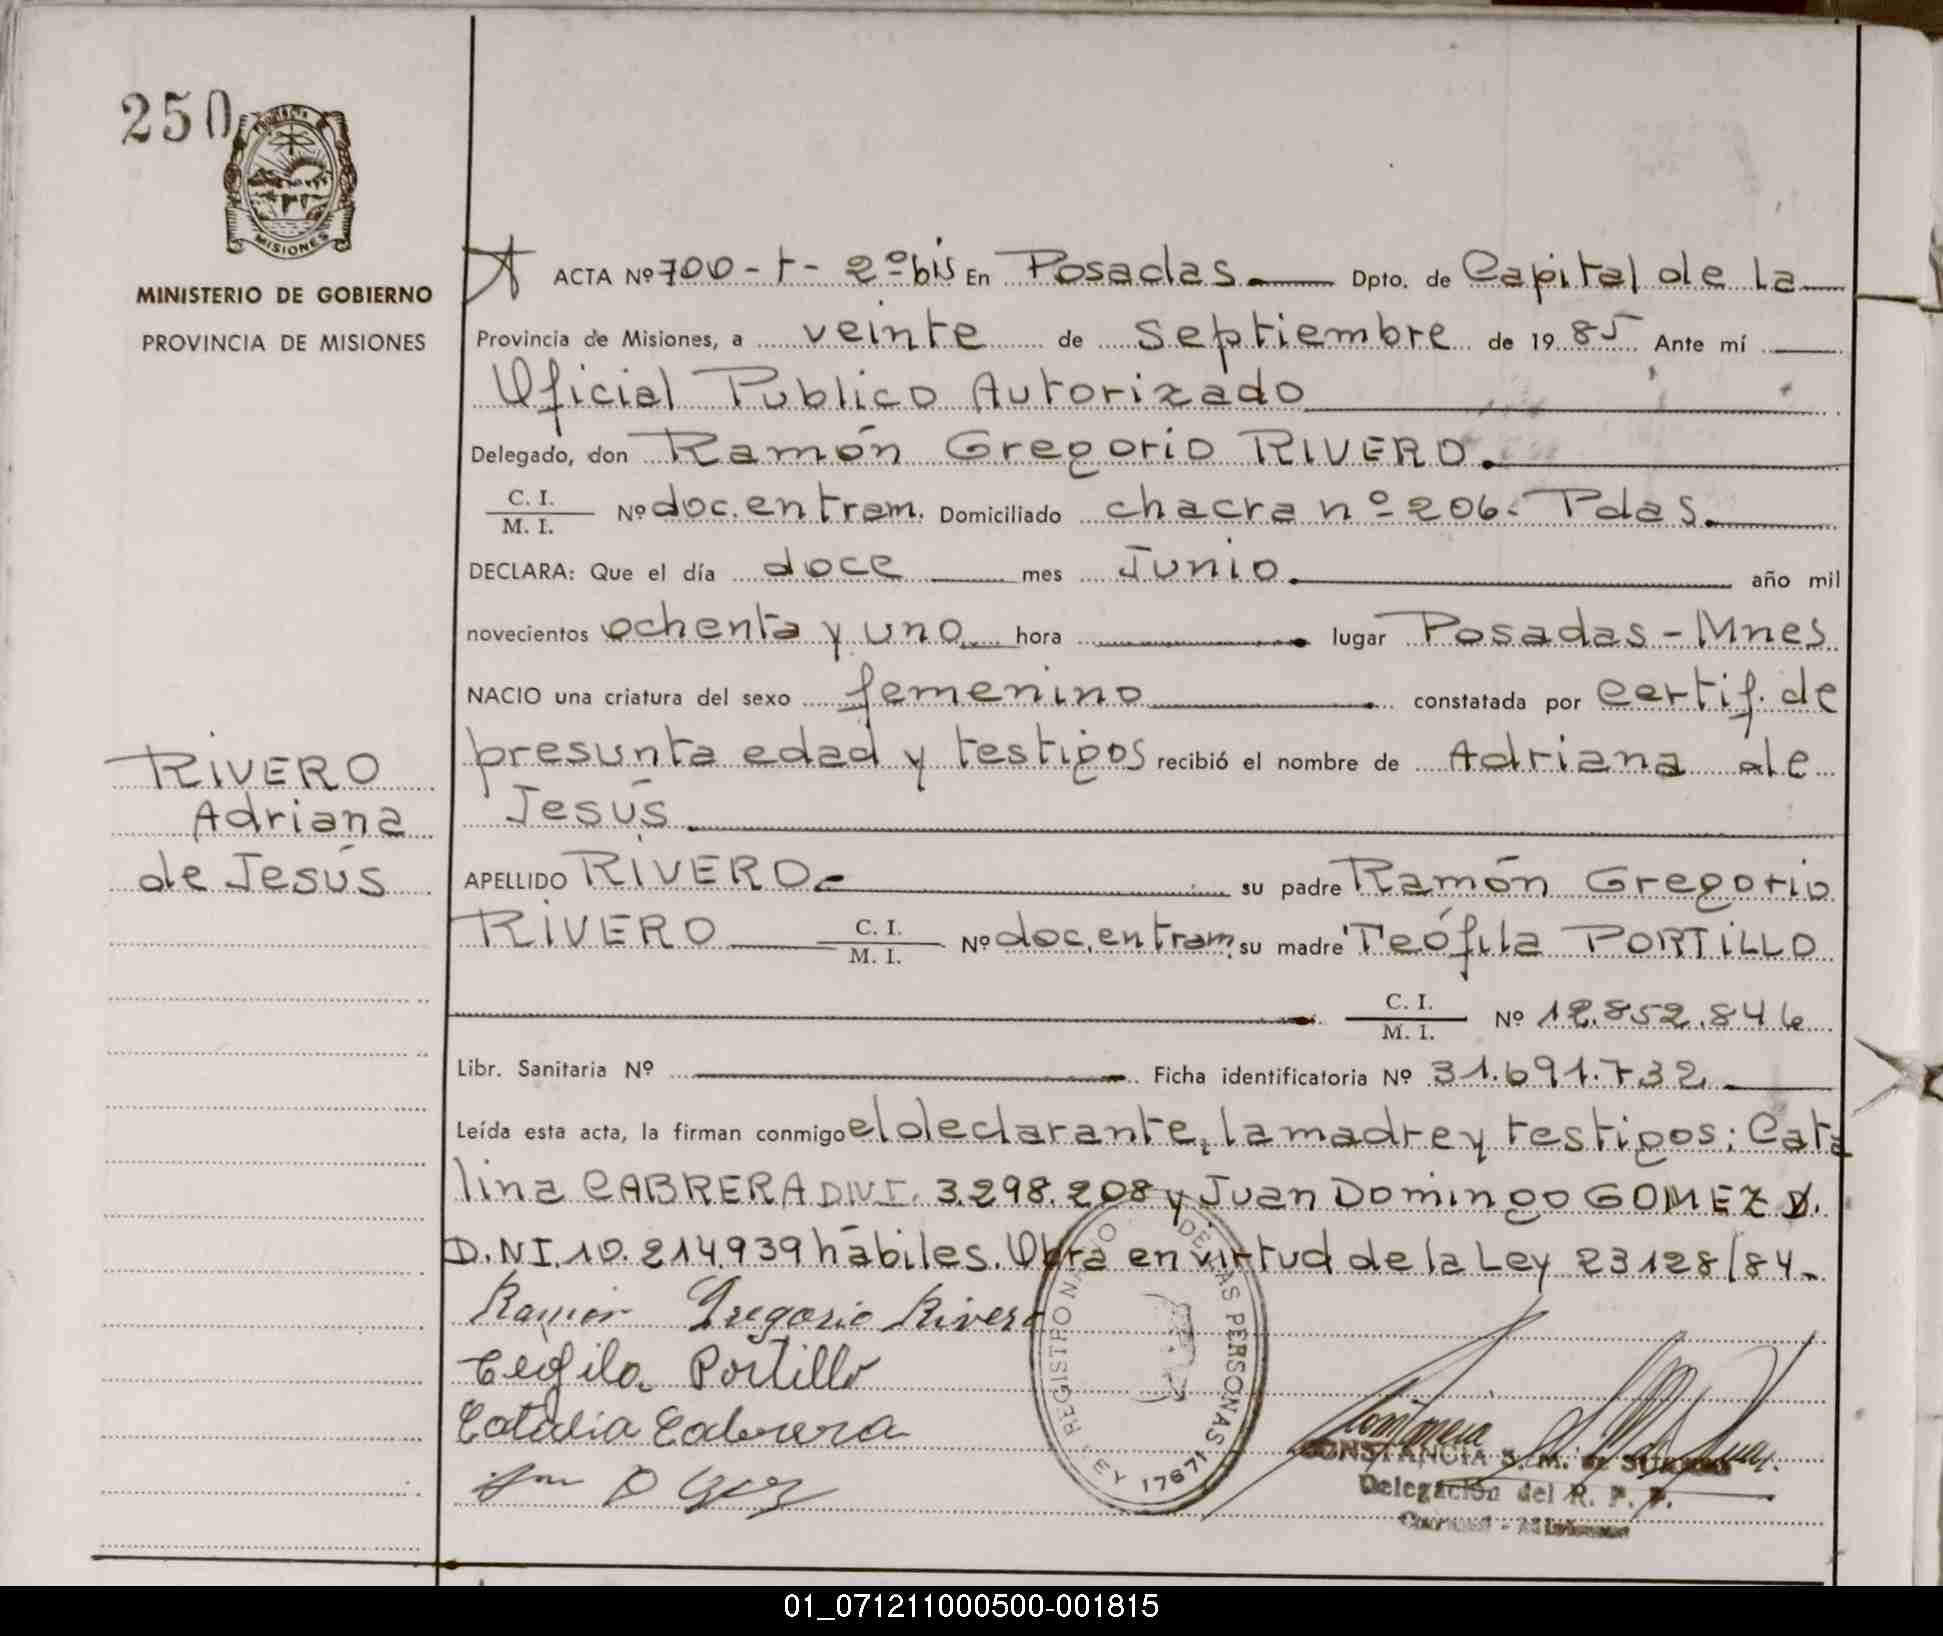 250
MISIONES
MINISTERIO DE GOBIERNO
PROVINCIA DE MISIONES
ACTA Nº 700 - t - 2º bis En Posadas. Dpto. de Capital de la
Provincia de Misiones, a veinte de septiembre de 19 85 Ante mí
Oficial Publico Autorizado
Delegado, don Ramón Gregorio RIVERO.
C. I.
M. I.
Nº doc. en tram. Domiciliado chacra nº 206. Pdas.
DECLARA: Que el día doce mes Junio. año mil
novecientos ochenta y uno hora lugar Posadas - Mnes
NACIO una criatura del sexo femenino constatada por certif. de
presunta edad y testigos recibió el nombre de Adriana de
Jesús
RIVERO
Adriana
de Jesús
APELLIDO RIVERO. su padre Ramón Gregorio
RIVERO C. I.
M. I.
Nº doc. en tram. su madre Teófila PORTILLO
C. I.
M. I.
Nº 12.852.846
Libr. Sanitaria Nº Ficha identificatoria Nº 31.691.732
Leída esta acta, la firman conmigo el declarante, la madre y testigos: Cata
lina CABRERA D.N.I. 3.298.208 y Juan Domingo GOMEZ D.
D.N.I. 10.214.939 hábiles. Obra en virtud de la Ley 23128/84.
Ramón Gregorio Rivero
Teofila Portillo
Catalia Cabrera
REGISTRO NACIONAL DE LAS PERSONAS
LEY 17671
CONSTANCIA S. M. de
Delegación del R. P. P.
01_071211000500-001815